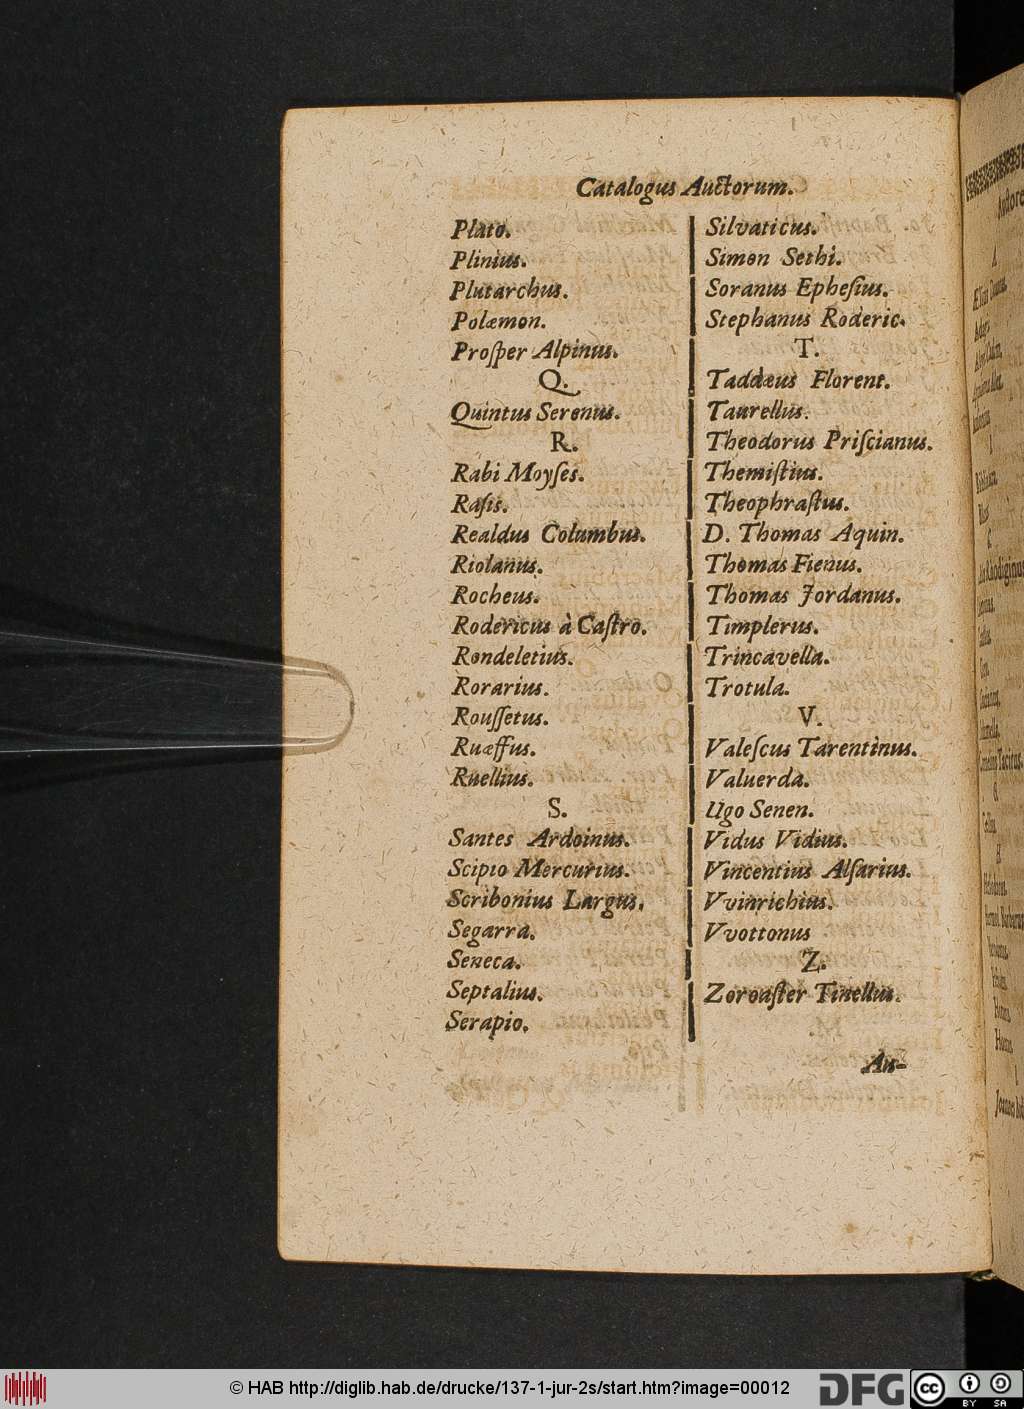 Catalogus Auctorum.
Plato.
Plinius.
Plutarchus.
Polæmon.
Proſper Alpinus.
Q.
Quintus Serenus.
R.
Rabi Moyſes.
Raſis.
Realdus Columbus.
Riolanus.
Rocheus.
Rodericus à Caſtro.
Rondeletius.
Rorarius.
Rouſſetus.
Ruæffus.
Ruellius.
S.
Santes Ardoinus.
Scipio Mercurius.
Scribonius Largus.
Segarra.
Seneca.
Septalius.
Serapio.
Silvaticus.
Simon Sethi.
Soranus Epheſius.
Stephanus Roderic.
T.
Taddæus Florent.
Taurellus.
Theodorus Priſcianus.
Themiſtius.
Theophraſtus.
D. Thomas Aquin.
Thomas Fienus.
Thomas Jordanus.
Timplerus.
Trincavella.
Trotula.
V.
Valeſcus Tarentinus.
Valuerda.
Ugo Senen.
Vidus Vidius.
Vincentius Alſarius.
Vvinrichius.
Vvottonus
Z.
Zoroaſter Tinellus.
Au-
© HAB http://diglib.hab.de/drucke/137-1-jur-2s/start.htm?image=00012
DFG
cc
BY SA